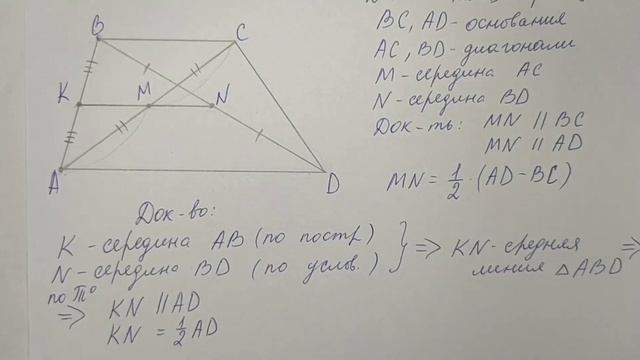 B
C
K
M
N
A
D
BC, AD - основания
AC, BD - диагонали
M - середина AC
N - середина BD
Док-ть: MN || BC
MN || AD
MN = 1/2 · (AD - BC)
Док-во:
K - середина AB (по постр.)
N - середина BD (по услов.) } => KN - средняя линия △ABD =>
по Tº
=> KN || AD
KN = 1/2 AD